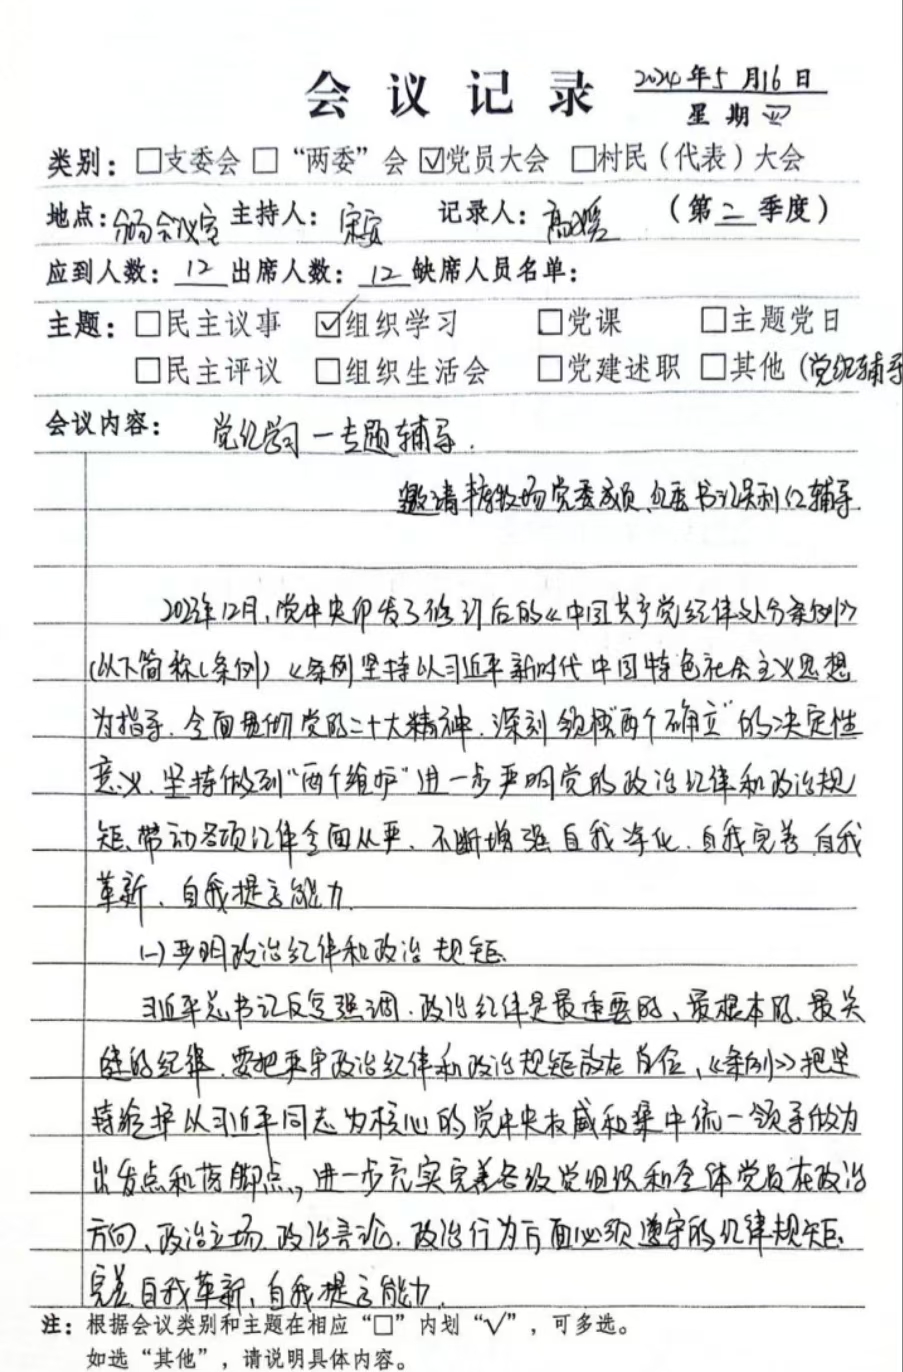 会议记录 2024年5月16日
星期四
类别：□支委会 □“两委”会 ☑党员大会 □村民（代表）大会
地点： 会议室 主持人： 记录人：高媛 （第二季度）
应到人数：12 出席人数：12 缺席人员名单：
主题：□民主议事 ☑组织学习 □党课 □主题党日
□民主评议 □组织生活会 □党建述职 □其他（党纪辅导
会议内容： 党纪学习—专题辅导.
邀请 牧场党委成员、纪委书记 辅导.
2023年12月，党中央印发了修订后的《中国共产党纪律处分条例》
（以下简称《条例》）《条例坚持以习近平新时代中国特色社会主义思想
为指导.全面贯彻党的二十大精神.深刻领悟“两个确立”的决定性
意义.坚持做到“两个维护”进一步严明党的政治纪律和政治规
矩、带动各项纪律全面从严.不断增强自我净化.自我完善.自我
革新、自我提高能力.
(一)严明政治纪律和政治规矩.
习近平总书记反复强调.政治纪律是最重要的、最根本的.最关
键的纪律.要把严守政治纪律和政治规矩放在首位，《条例》把坚
持维护以习近平同志为核心的党中央权威和集中统一领导做为
出发点和落脚点，进一步充实完善各级党组织和全体党员在政治
方向、政治立场.政治言论.政治行为方面必须遵守的纪律规矩.
完善自我革新、自我提高能力.
注：根据会议类别和主题在相应“□”内划“√”，可多选。
如选“其他”，请说明具体内容。